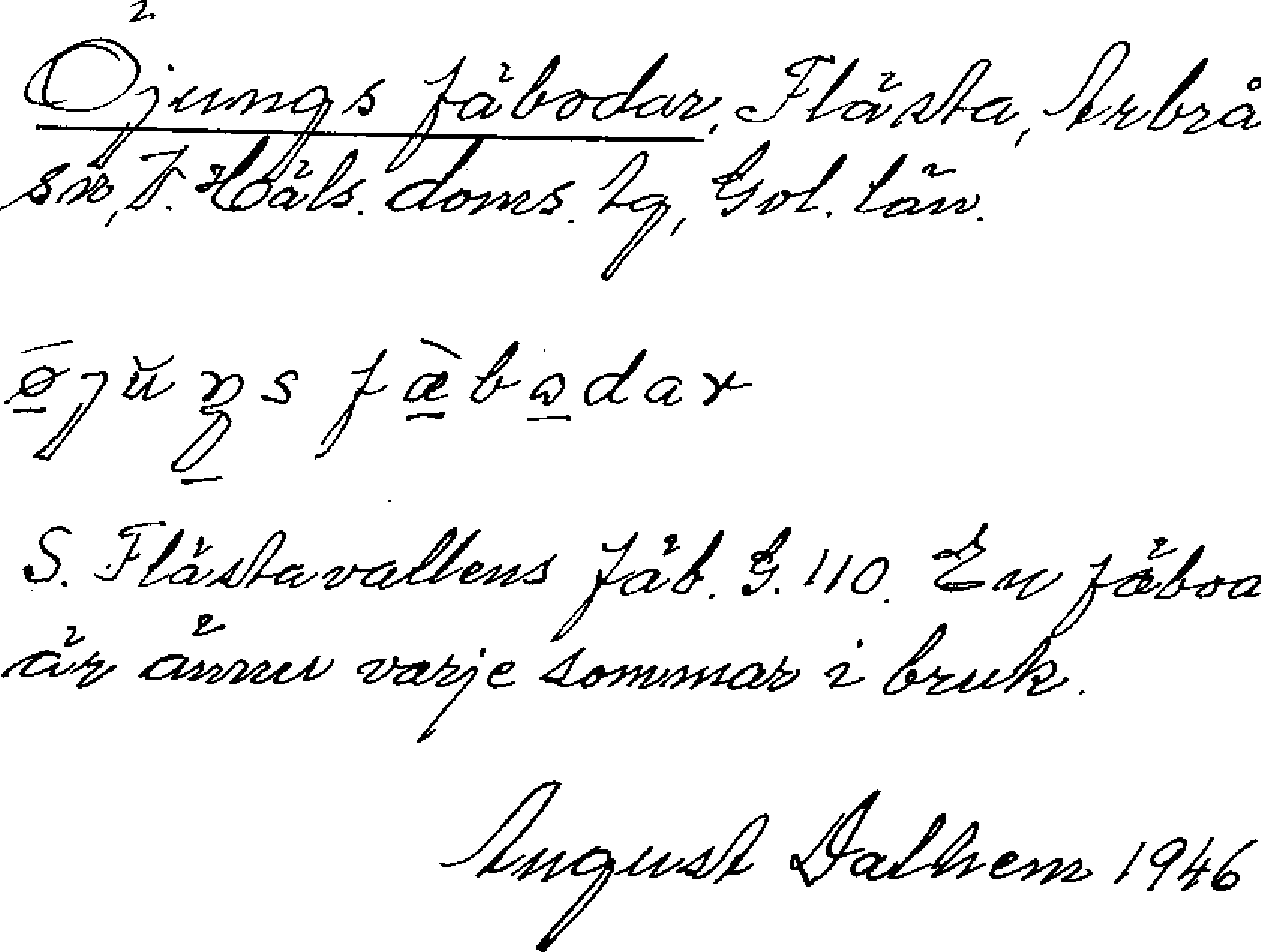 Öjungs fäbodar, Flästa, Arbrå
sn, V. Häls. doms. lg, Gvl. län.
ø̱̄jŭŋs fæ̱̀bo̱dar
S. Flästavallens fäb. G. 110. En fäbod
är ännu varje sommar i bruk.
August Dalhem 1946